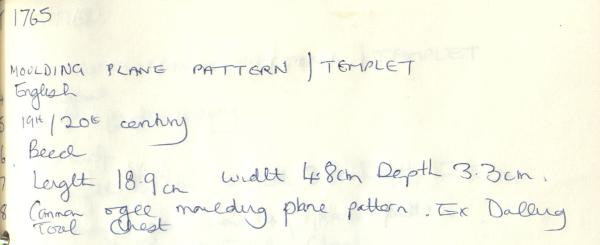 1765
MOULDING PLANE PATTERN / TEMPLET
English
19th/20th century
Beech
Length 18.9cm width 4.8cm Depth 3.3cm.
Common ogee moulding plane pattern. Ex
Tool Chest